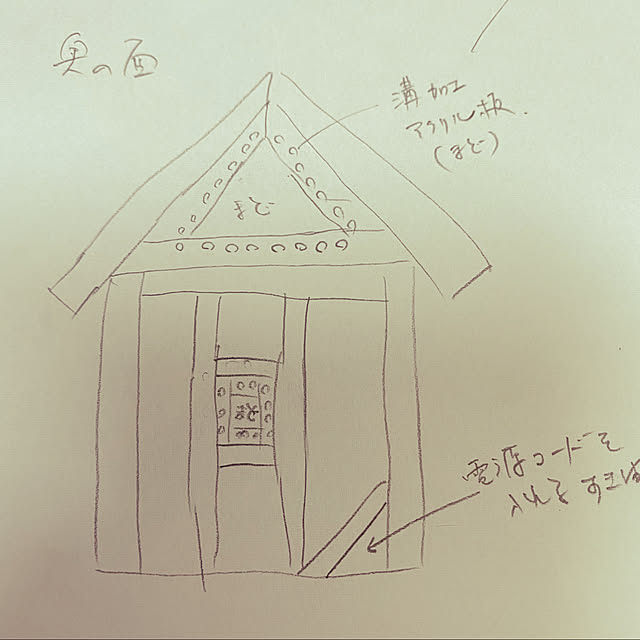 奥の面
溝加工
アクリル板
(まど)
まど
電源コードを
入れる すきま